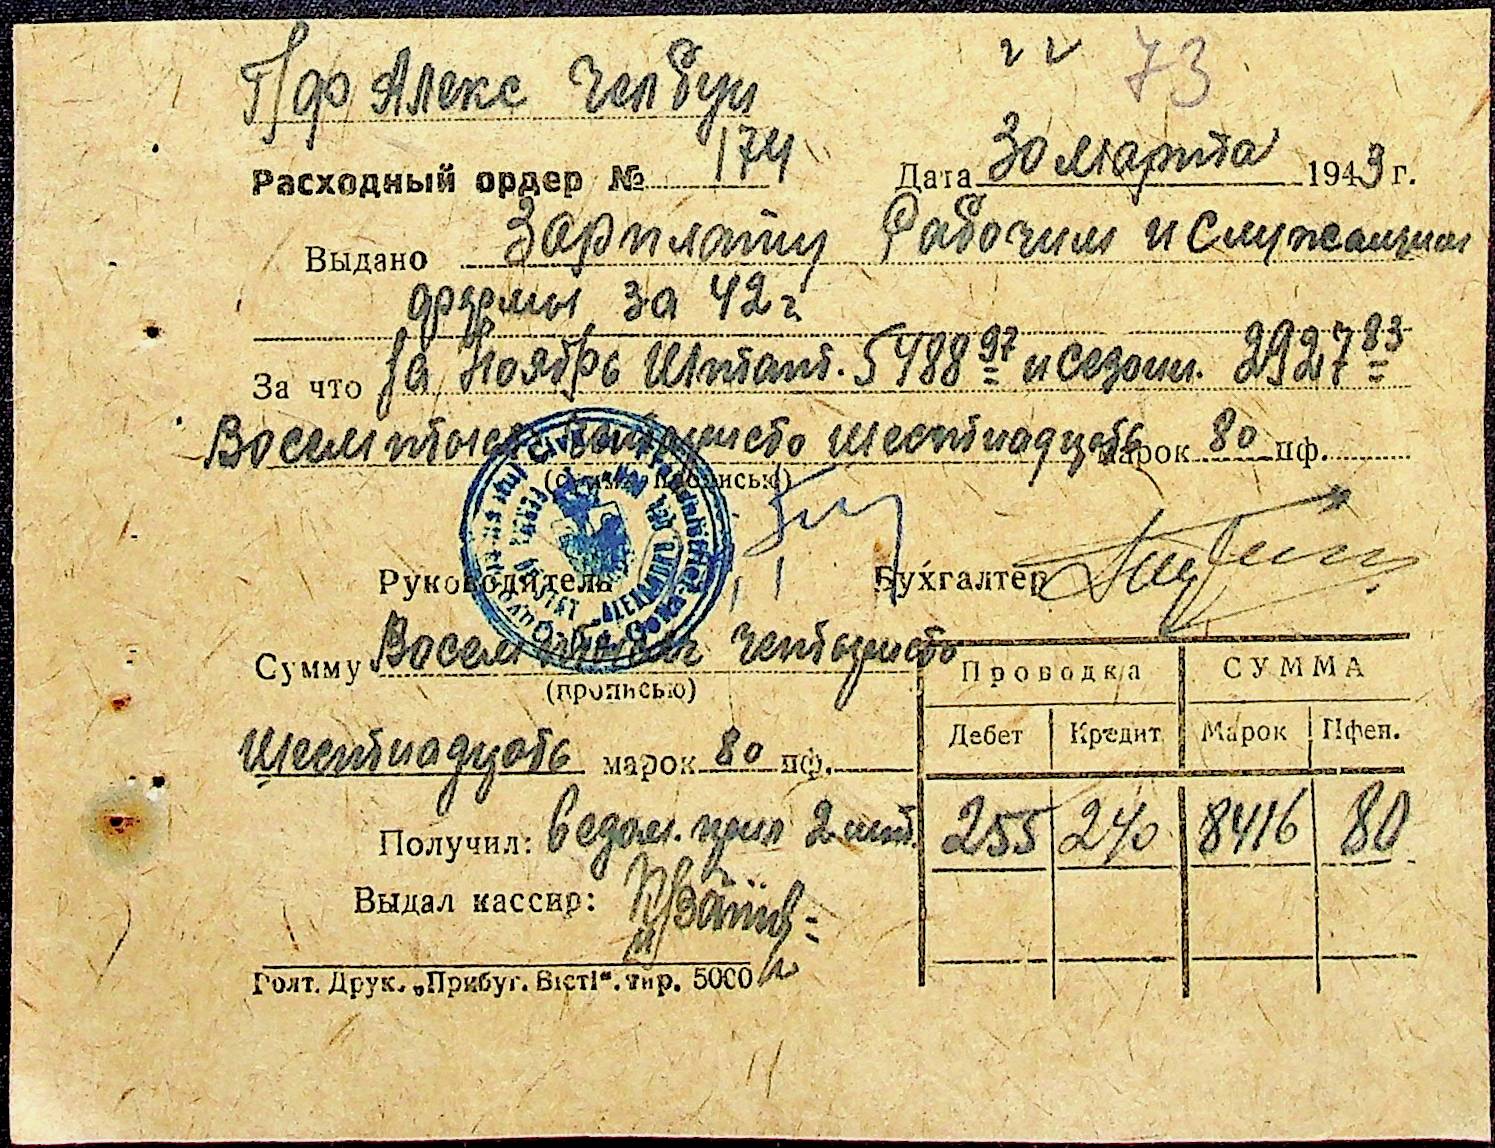 73
П/ф Алекс
Расходный ордер № 174 Дата 30 марта 1943 г.
Выдано Зарплату Рабочим и Служащим
фермы за 42 г
За что за Ноябрь Штатн. 5488 97 и сезонн. 2927 83
Восемь тысяч четыриста шестнадцать марок 80 пф.
(сумма прописью)
Руководитель Бухгалтер
Сумму Восемь тысяч четыриста
(прописью)
Шестнадцать марок 80 пф.
Проводка СУММА
Дебет Кредит Марок Пфен.
255 240 8416 80
Получил: ведом. прил 2 шт.
Выдал кассир:
Голт. Друк. „Прибуг. Вісті“. тир. 5000